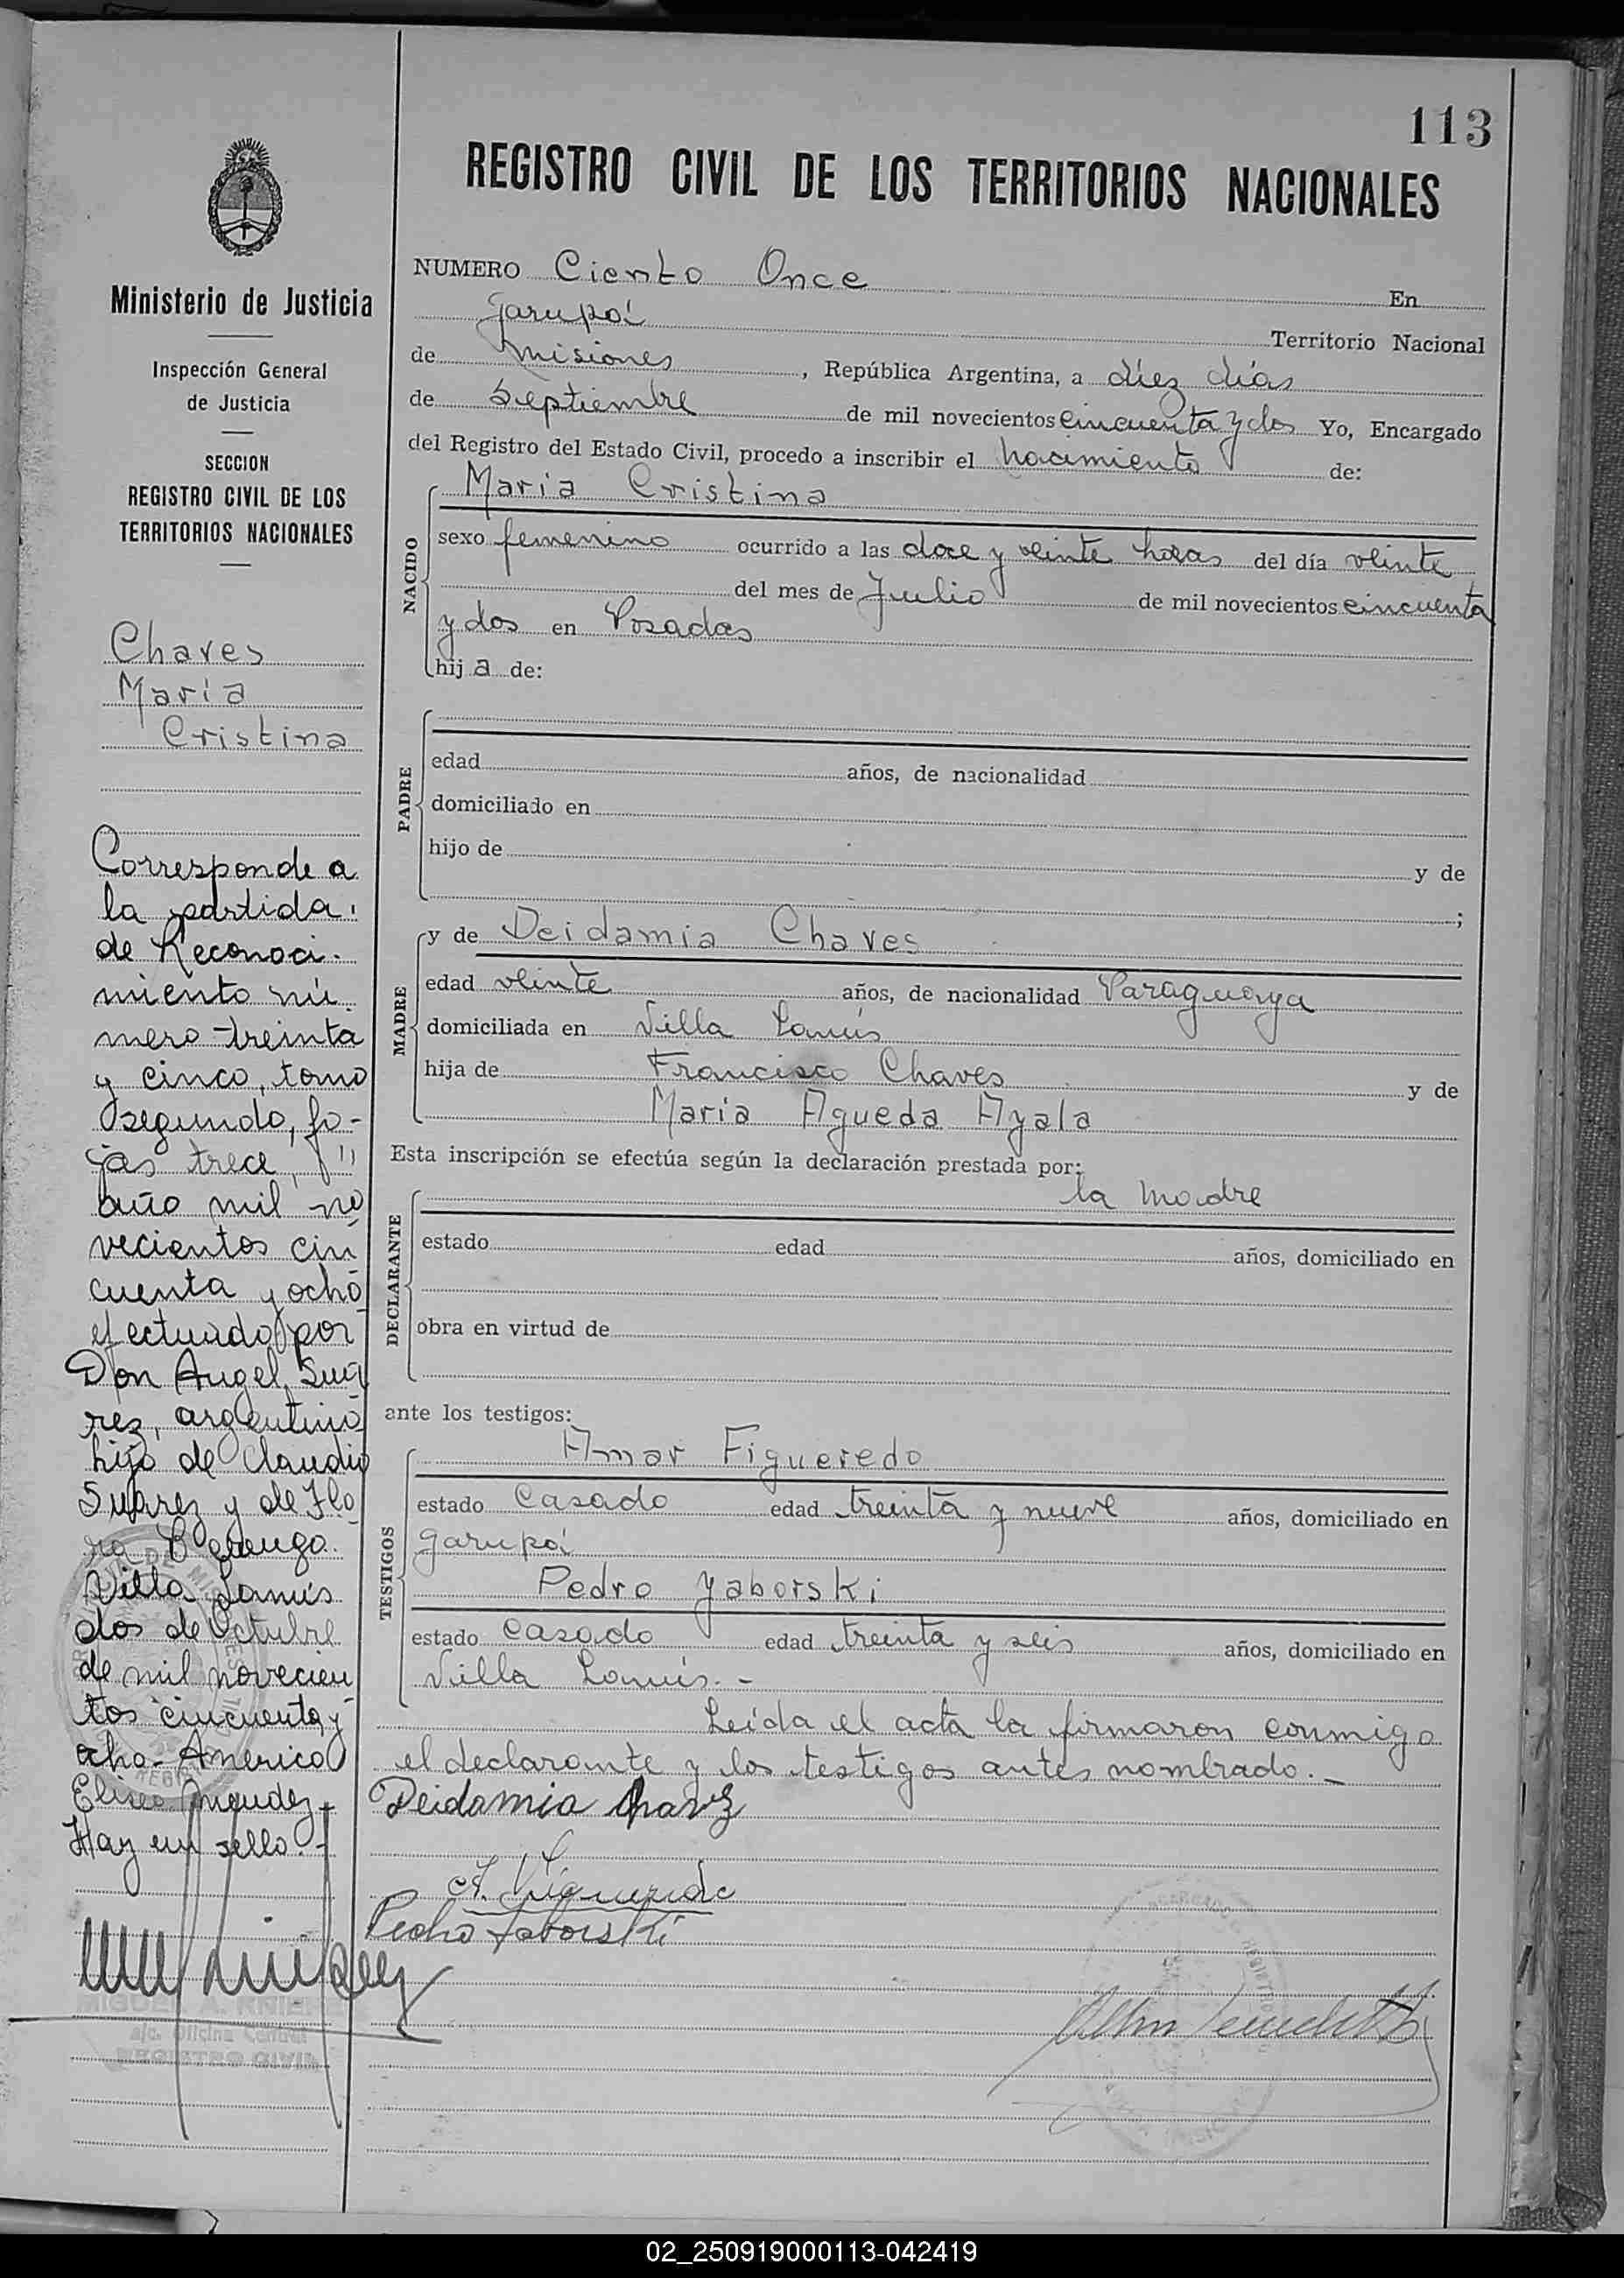 113
REGISTRO CIVIL DE LOS TERRITORIOS NACIONALES
Ministerio de Justicia
Inspección General
de Justicia
SECCION
REGISTRO CIVIL DE LOS
TERRITORIOS NACIONALES
Chaves
María
Cristina
Corresponde a
la partida
de Reconoci-
miento nú
mero treinta
y cinco, tomo
segundo, fo-
jas trece,
año mil no
vecientos cin
cuenta y ocho
efectuado por
Don Angel Suá
rez, argentino
hijo de Claudio
Suárez y de Flo
ra
Villa Lanús
dos de Octubre
de mil novecien
tos cincuenta y
ocho - Americo
Eliseo
Hay un sello.-
MIGUEL A.
a/c. Oficina Central
REGISTRO CIVIL
NUMERO Ciento Once En
Garupá Territorio Nacional
de Misiones, República Argentina, a diez días
de Septiembre de mil novecientos cincuenta y dos Yo, Encargado
del Registro del Estado Civil, procedo a inscribir el nacimiento de:
NACIDO
Maria Cristina
sexo femenino ocurrido a las doce y veinte horas del día veinte
del mes de Julio de mil novecientos cincuenta
y dos en Posadas
hij a de:
PADRE
edad años, de nacionalidad
domiciliado en
hijo de y de
;
MADRE
y de Deidamia Chaves
edad veinte años, de nacionalidad Paraguaya
domiciliada en Villa Lanús
hija de Francisco Chaves y de
Maria Agueda Ayala
Esta inscripción se efectúa según la declaración prestada por:
DECLARANTE
la madre
estado edad años, domiciliado en
obra en virtud de
ante los testigos:
TESTIGOS
Amar Figueredo
estado Casado edad treinta y nueve años, domiciliado en
Garupá
Pedro Yaborski
estado Casado edad treinta y seis años, domiciliado en
Villa Lanús.-
Leída el acta la firmaron conmigo
el declarante y los testigos antes nombrado.-
Deidamia Chavez
A. Figueredo
Pedro Yaborski
02_250919000113-042419